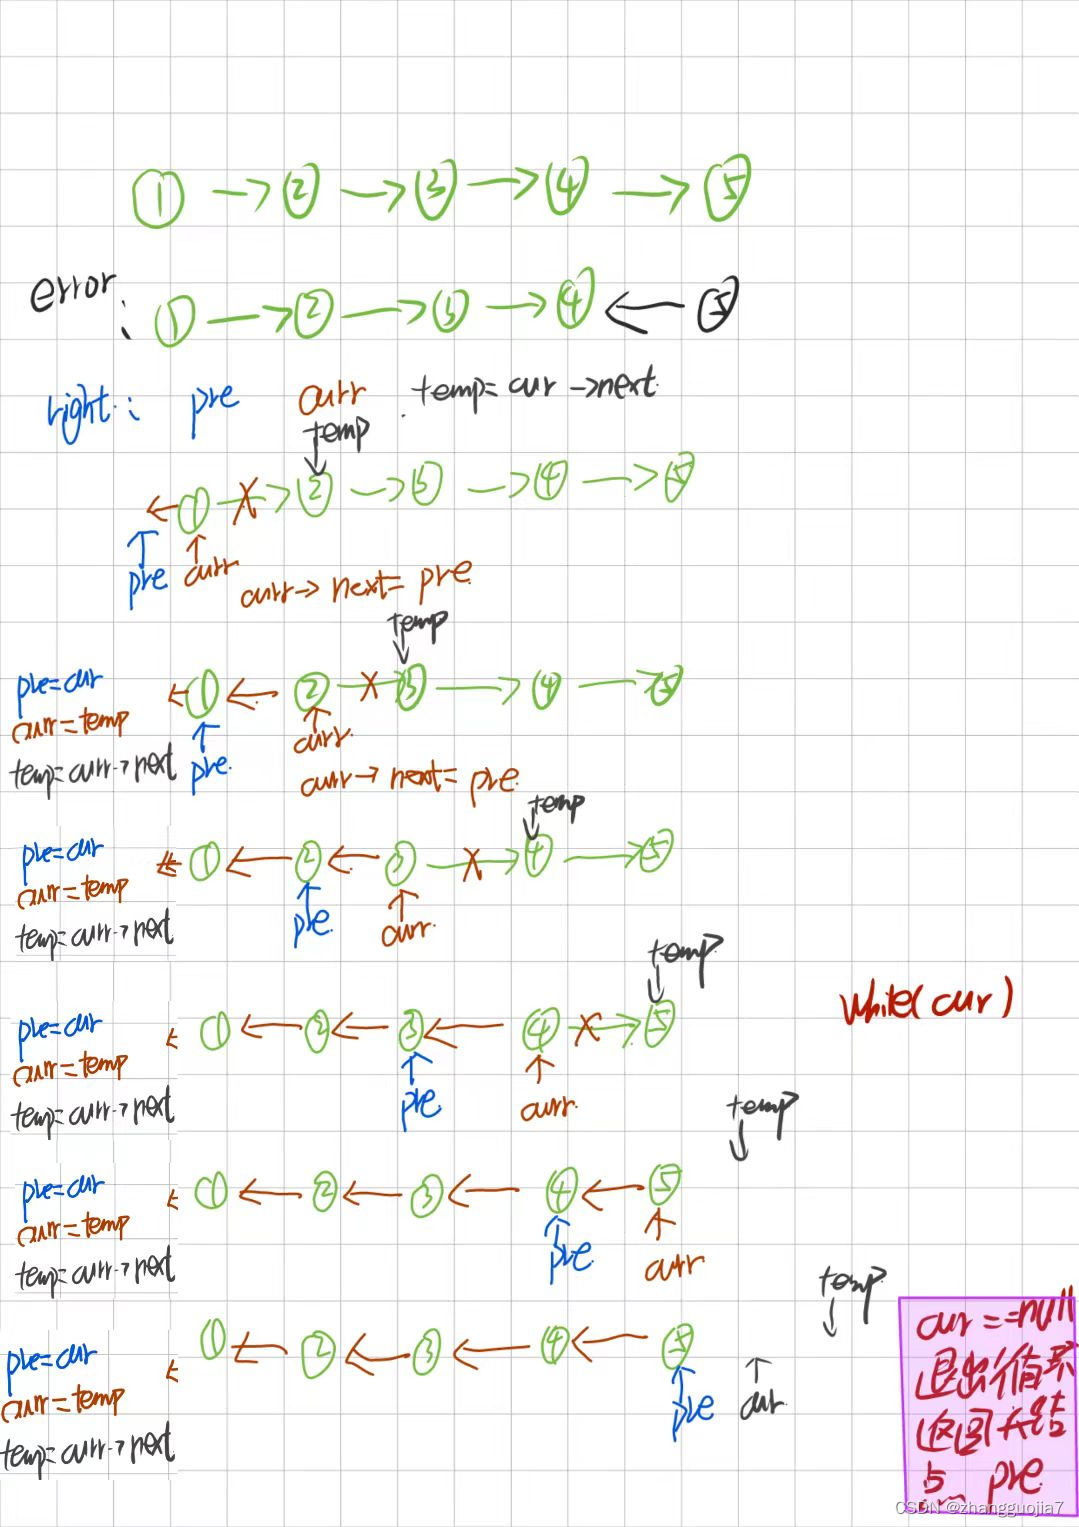 ① → ② → ③ → ④ → ⑤
error :
① → ② → ③ → ④ ← ⑤
right : pre curr temp= cur →next
temp
← ① → ② → ③ → ④ → ⑤
pre curr
curr→ next= pre
temp
pre=cur
curr=temp
temp=curr→next
← ① ← ② → ③ → ④ → ⑤
pre curr
curr→ next= pre
temp
pre=cur
curr=temp
temp=curr→next
← ① ← ② ← ③ → ④ → ⑤
pre curr
temp
pre=cur
curr=temp
temp=curr→next
← ① ← ② ← ③ ← ④ → ⑤
pre curr
while(cur)
temp
pre=cur
curr=temp
temp=curr→next
← ① ← ② ← ③ ← ④ ← ⑤
pre curr
temp
pre=cur
curr=temp
temp=curr→next
← ① ← ② ← ③ ← ④ ← ⑤
pre cur
cur==null
退出循环
返回头结
点 pre
CSDN @zhangguojia7